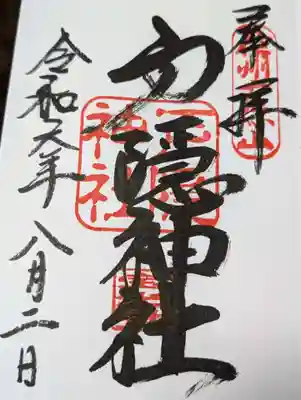 奉拝
戸隠神社
神社
令和六年八月二日